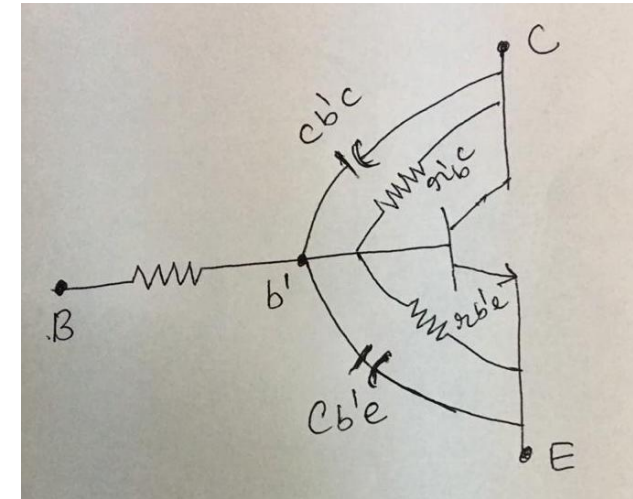 C
Cb'c
rb'c
b'
B
rb'e
Cb'e
E